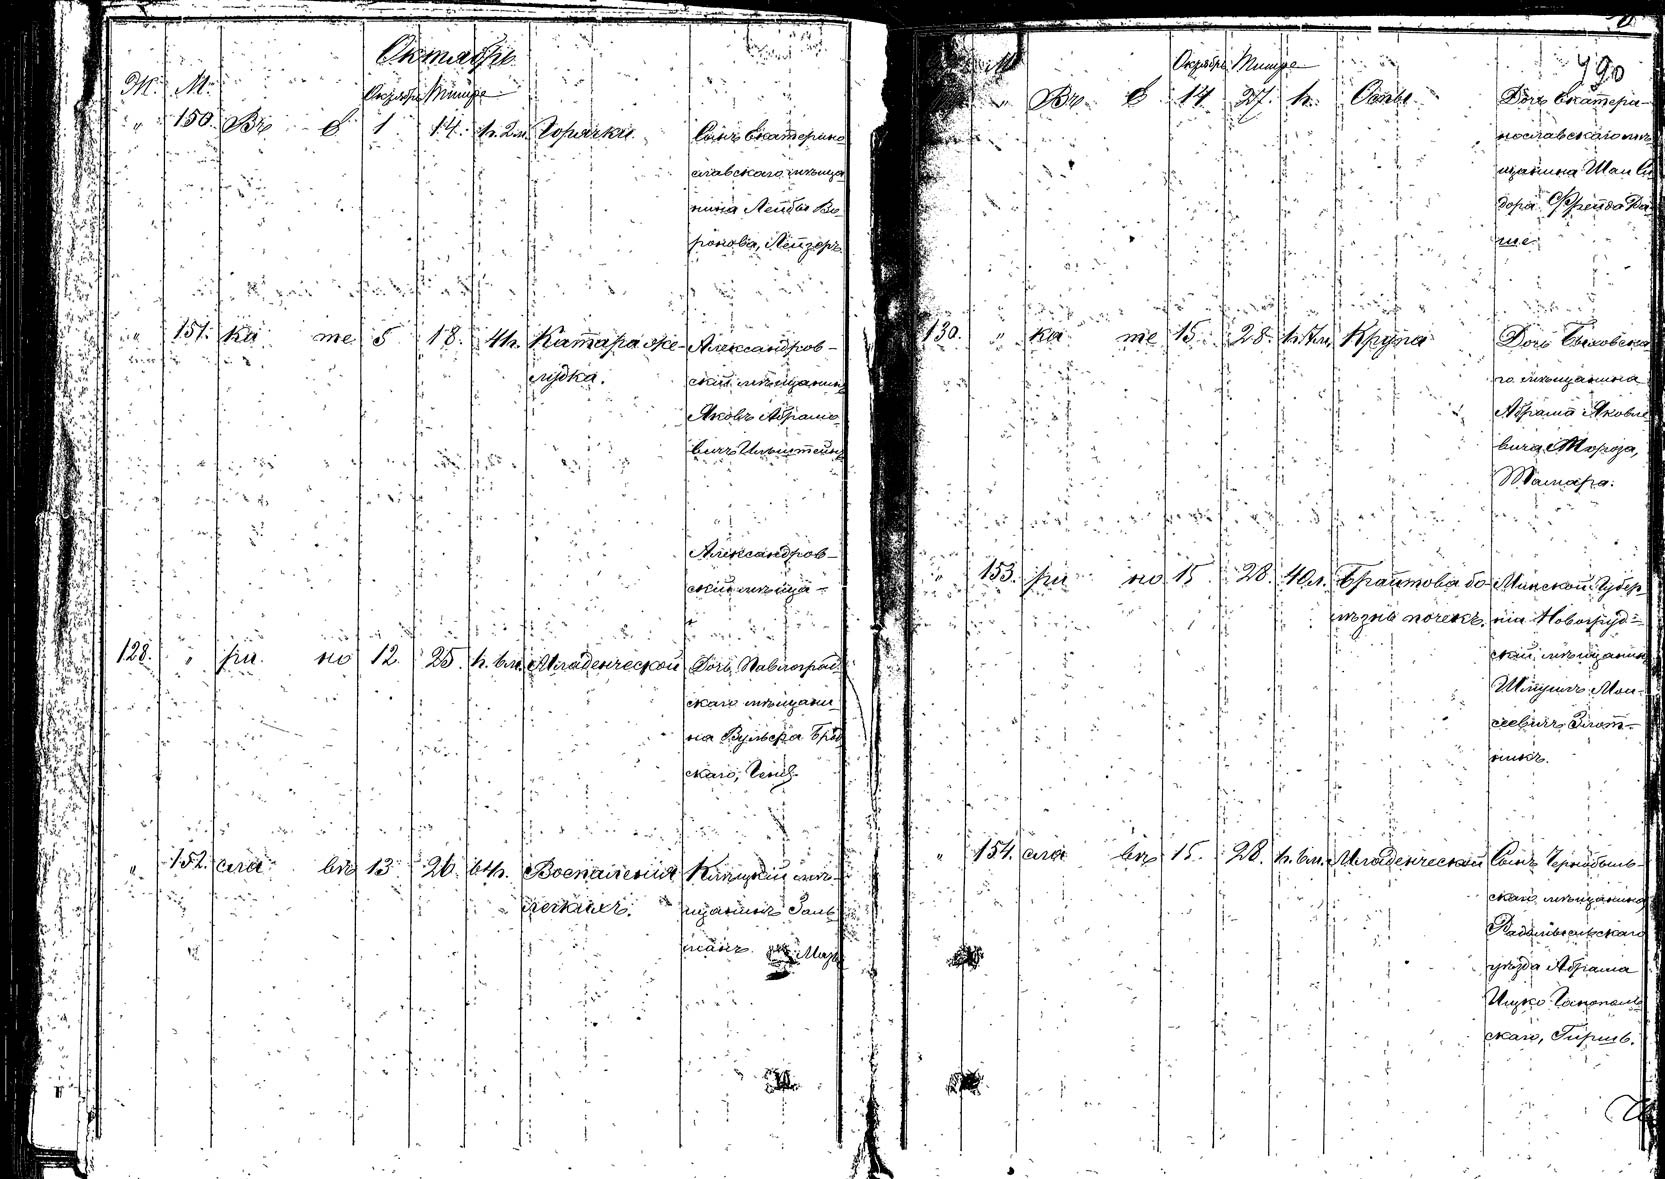 Октябрь
Ж. М. Октября Тишре
" 150. Въ Е 1 14. 1 г. 2 м. Горячки Сынъ Екатерино
славскаго мѣща
нина Лейбы Во
ронова, Лейзеръ.
" 151. ка те 5 18. Катара же- Александров-
лудка. скій мѣщанинъ
Яковъ Абрамо
вичъ
Александров-
скій мѣща-
128. " ри но 12 25. Младенческой Дочь Павлоград
скаго мѣщани
на Вульфа Брод
скаго,
" 152. сла въ 13 26. Воспаленія Клецкій мѣ-
легкихъ. щанинъ Заль
манъ
490
М. Октября Тишре
" Въ Е 14 27. Оспы Дочь Екатери-
нославскаго мѣ
щанина
дора
130. " ка те 15. 28. Крупа Дочь Быховска
го мѣщанина
Абрама Яковле
вича Мороза,
Тамара.
" 153. ри но 15 28. Брайтова бо- Минской Губер
лѣзнь почекъ. ніи Новогруд-
скій мѣщанинъ
Шмуилъ Мои-
сеевичъ Злот-
никъ.
" 154. сла въ 15. 28. Младенческой Сынъ Чернобыль-
скаго мѣщанина,
Радомысльскаго
уѣзда Абрама
Ицко
скаго, Гиршъ.